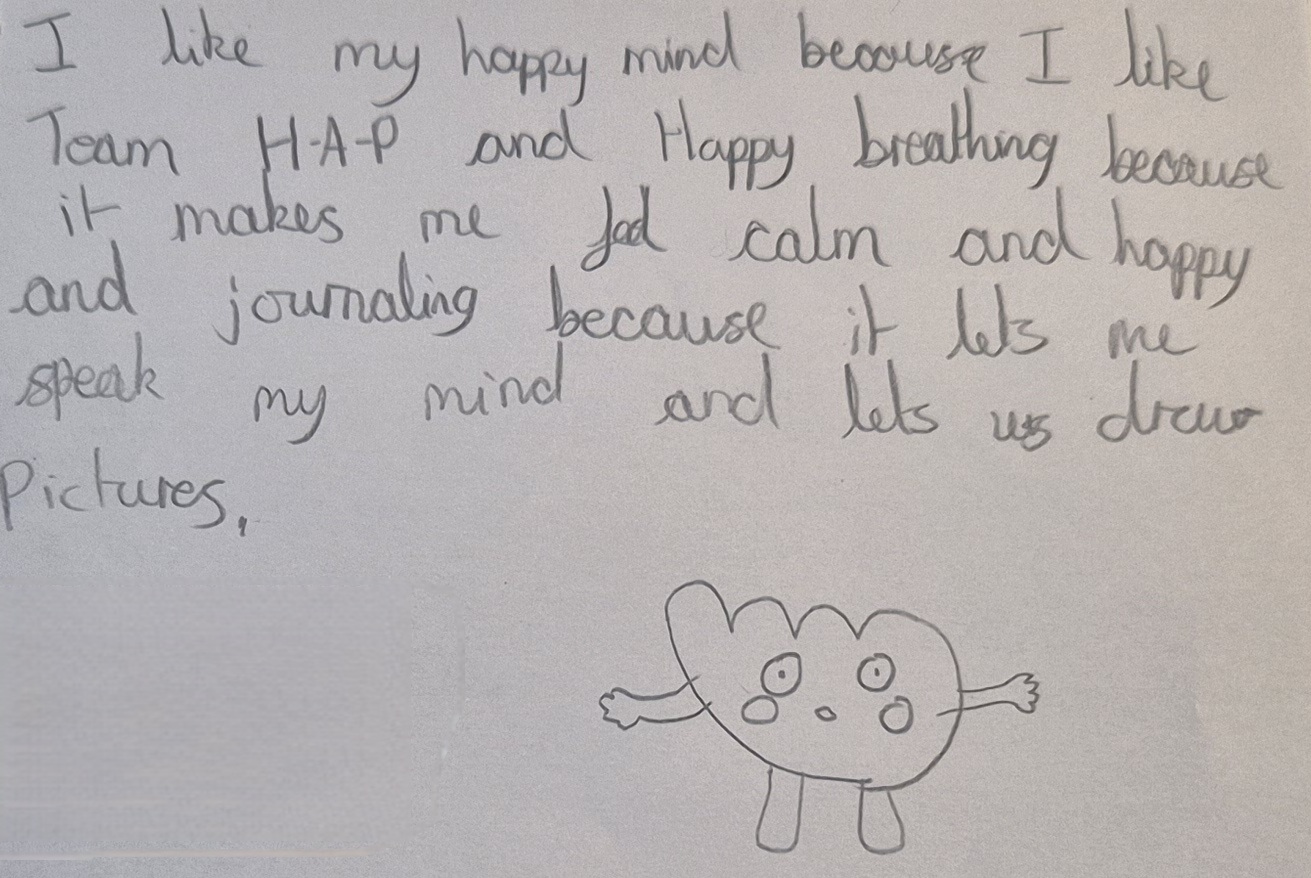 I like my happy mind because I like
Team H-A-P and Happy breathing because
it makes me feel calm and happy
and journaling because it lets me
speak my mind and lets us draw
Pictures,